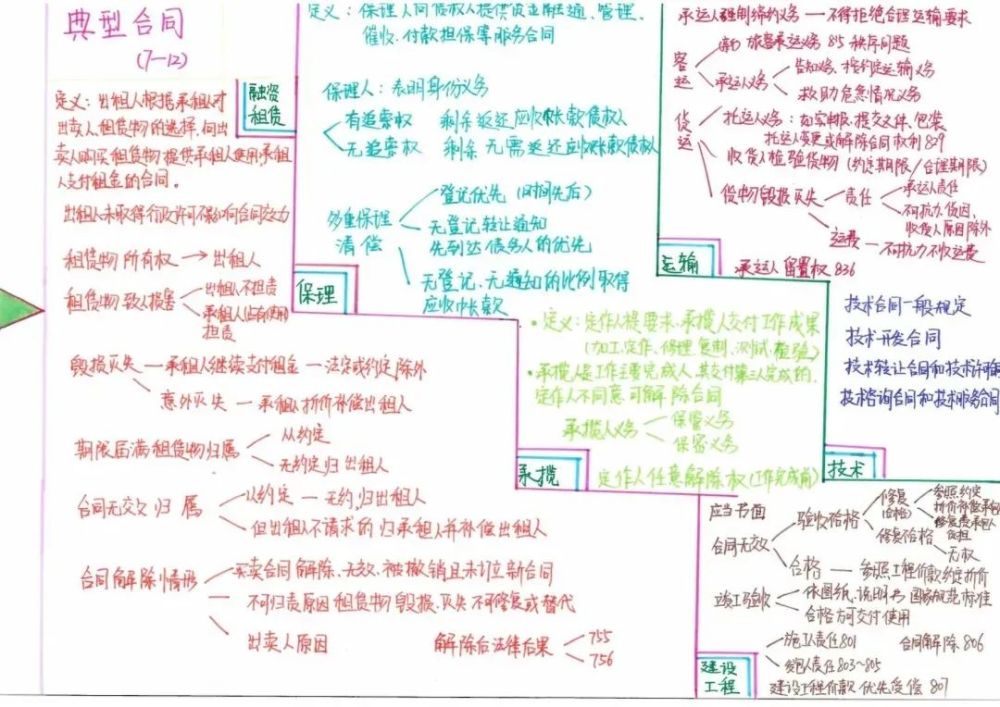 典型合同
(7—12)
融资
租赁
定义：出租人根据承租人对
出卖人、租赁物的选择，向出
卖人购买租赁物提供承租人使用，承租
人支付租金的合同。
出租人未取得行政许可不影响合同效力
租赁物所有权 → 出租人
租赁物致人损害
出租人不担责
承租人占有使用
担责
毁损灭失 — 承租人继续支付租金 — 法定或约定除外
意外灭失 — 承租人折价补偿出租人
期限届满租赁物归属
从约定
无约定归出租人
合同无效归属
从约定 — 无约，归出租人
但出租人不请求的归承租人并补偿出租人
合同解除情形
买卖合同解除、无效、被撤销且未订立新合同
不可归责原因租赁物毁损、灭失不可修复或替代
出卖人原因
解除后法律后果
755
756
定义：保理人向债权人提供资金融通、管理、
催收、付款担保等服务合同
保理人：表明身份义务
有追索权 剩余返还应收帐款债权人
无追索权 剩余无需返还应收账款债权人
多重保理
清偿
登记优先（时间先后）
无登记转让通知
先到达债务人的优先
无登记、无通知的比例取得
应收帐款
保理
承运人强制缔约义务 — 不得拒绝合理运输要求
客运
旅客承运义务 815 秩序问题
承运人义务
告知义务、按约定运输义务
救助危急情况义务
货运
托运人义务：如实申报、提交文件、包装
托运人变更或解除合同权利 829
收货人检验货物（约定期限/合理期限）
货物毁损灭失
责任
承运人责任
不可抗力、货因，
收货人原因除外
运费 — 不可抗力不收运费
承运人留置权 836
运输
• 定义：定作人提要求、承揽人交付工作成果
（加工、定作、修理、复制、测试、检验）
• 承揽人是工作主要完成人，其交付第三人完成的，
定作人不同意可解除合同
承揽人义务
保管义务
保密义务
定作人任意解除权（工作完成前）
承揽
技术合同一般规定
技术开发合同
技术转让合同和技术许可
技术咨询合同和技术服务合同
技术
应当书面
合同无效
验收不合格
修复
（合格）
参照约定
折价补偿承包人
修复费承包人
负担
修复不合格
无权
合格 — 参照工程价款约定折价
竣工验收
依图纸、说明书国家规范标准
合格方可交付使用
施工人责任 801
合同解除 806
发包人责任 803~805
建设工程价款优先受偿 807
建设
工程